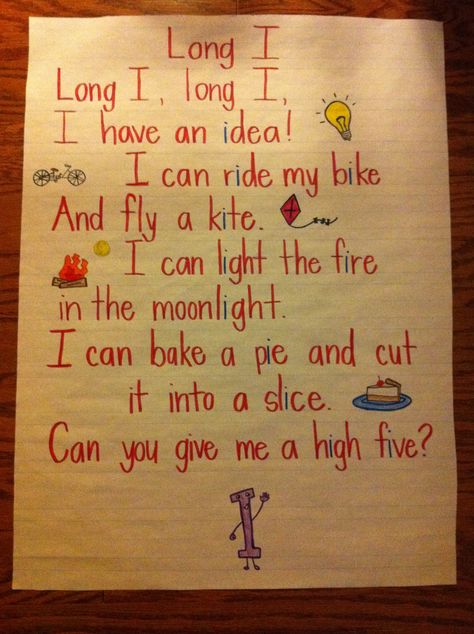 Long I
Long I, long I,
I have an idea!
I can ride my bike
And fly a kite.
I can light the fire
in the moonlight.
I can bake a pie and cut
it into a slice.
Can you give me a high five?